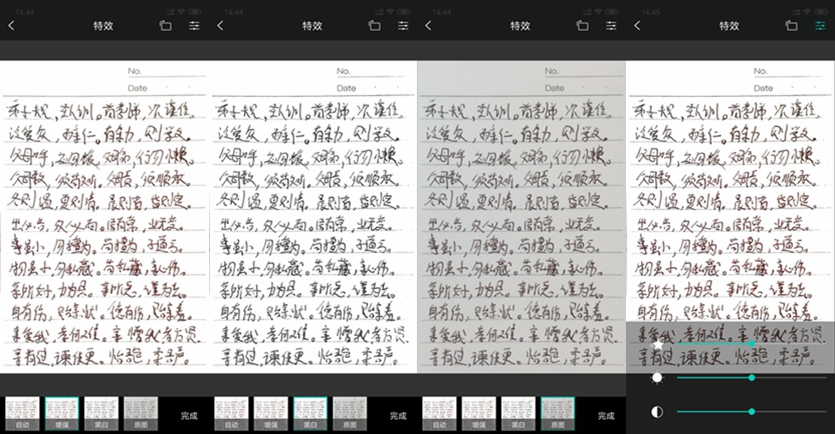 14:44
特效
No.
Date
弟子规,圣人训。首孝悌,次谨信。
泛爱众,而亲仁。有余力,则学文。
父母呼,应勿缓,父母命,行勿懒。
父母教,须敬听。父母责,须顺承。
冬则温,夏则凊,晨则省,昏则定。
出必告,反必面。居有常,业无变。
事虽小,勿擅为。苟擅为,子道亏。
物虽小,勿私藏。苟私藏,亲心伤。
亲所好,力为具。亲所恶,谨为去。
身有伤,贻亲忧,德有伤,贻亲羞。
亲爱我,孝何难。亲憎我,孝方贤。
亲有过,谏使更。怡吾色,柔吾声。
自动
增强
黑白
原图
完成
14:44
特效
No.
Date
弟子规,圣人训。首孝悌,次谨信。
泛爱众,而亲仁。有余力,则学文。
父母呼,应勿缓,父母命,行勿懒。
父母教,须敬听。父母责,须顺承。
冬则温,夏则凊,晨则省,昏则定。
出必告,反必面。居有常,业无变。
事虽小,勿擅为。苟擅为,子道亏。
物虽小,勿私藏。苟私藏,亲心伤。
亲所好,力为具。亲所恶,谨为去。
身有伤,贻亲忧,德有伤,贻亲羞。
亲爱我,孝何难。亲憎我,孝方贤。
亲有过,谏使更。怡吾色,柔吾声。
自动
增强
黑白
原图
完成
14:44
特效
No.
Date
弟子规,圣人训。首孝悌,次谨信。
泛爱众,而亲仁。有余力,则学文。
父母呼,应勿缓,父母命,行勿懒。
父母教,须敬听。父母责,须顺承。
冬则温,夏则凊,晨则省,昏则定。
出必告,反必面。居有常,业无变。
事虽小,勿擅为。苟擅为,子道亏。
物虽小,勿私藏。苟私藏,亲心伤。
亲所好,力为具。亲所恶,谨为去。
身有伤,贻亲忧,德有伤,贻亲羞。
亲爱我,孝何难。亲憎我,孝方贤。
亲有过,谏使更。怡吾色,柔吾声。
自动
增强
黑白
原图
完成
14:45
特效
No.
Date
弟子规,圣人训。首孝悌,次谨信。
泛爱众,而亲仁。有余力,则学文。
父母呼,应勿缓,父母命,行勿懒。
父母教,须敬听。父母责,须顺承。
冬则温,夏则凊,晨则省,昏则定。
出必告,反必面。居有常,业无变。
事虽小,勿擅为。苟擅为,子道亏。
物虽小,勿私藏。苟私藏,亲心伤。
亲所好,力为具。亲所恶,谨为去。
身有伤,贻亲忧,德有伤,贻亲羞。
亲爱我,孝何难。亲憎我,孝方贤。
亲有过,谏使更。怡吾色,柔吾声。